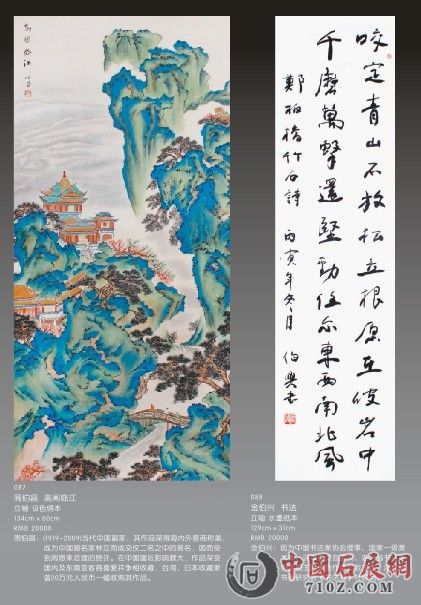 高閣臨江
咬定青山不放松立根原在破岩中
千磨萬擊還堅勁任尔東西南北風
鄭板橋竹石詩 丙寅年冬月 伯興书
087
周伯昌 高阁临江
立轴 设色绢本
134cm x 60cm
RMB 20000
周伯昌：(1919-2009)当代中国画家，其作品深得海内外客商称美，
成为中国画名家林立而成交仅二名之中的景名，因而受
到周恩来总理的赞许。在中国画坛影响颇大，作品深受
国内及东南亚客商喜爱并争相收藏，台湾、日本收藏家
曾20万元人民币一幅收购其作品。
088
金伯兴 书法
立轴 水墨纸本
129cm x 31cm
RMB 20000
金伯兴：现为中国书法家协会理事、国家一级美
中国石展网
710Z.COM